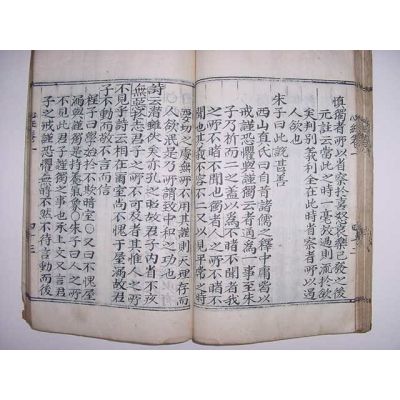 慎獨者所以省察於喜怒哀樂已發之後
元註云當此之時一毫放過則流於欲
矣判別義利全在此時省察者所以遏
人欲也
朱子曰此說甚善
西山真氏曰自昔諸儒之釋中庸皆以
戒謹恐懼與謹獨云者通爲一事至朱
子乃析而二之盖以爲不睹不聞者我
之所不睹不聞也獨者人之所不睹不
聞也其義不容不二又以見平常之時
要切之處無所不用其謹則天理存而
人欲泯是乃所謂致中和之功也
詩云潛雖伏矣亦孔之昭故君子內省不疚
無惡於志君子之所不可及者其惟人之所
不見乎詩云相在爾室尚不愧于屋漏故君
子不動而敬不言而信
程子曰學始於不欺暗室○又曰不愧屋
漏與謹獨是持養氣象○朱子曰人之所
不見此君子謹獨之事也承上文又言君
子之戒謹恐懼無時不然不待言動而後